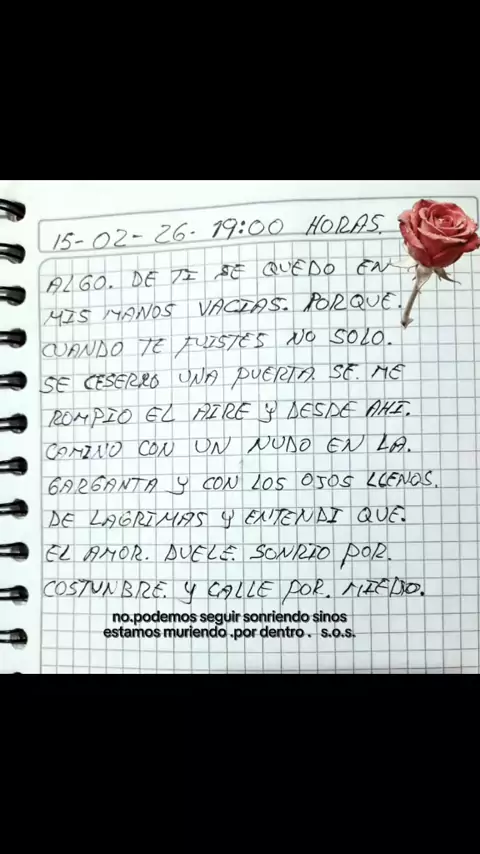 15-02-26. 19:00 HORAS.
ALGO. DE TI SE QUEDO EN
MIS MANOS VACIAS. PORQUE.
CUANDO TE FUISTES NO SOLO.
SE CESERRO UNA PUERTA. SE. ME
ROMPIO EL AIRE Y DESDE AHI.
CAMINO CON UN NUDO EN LA.
GARGANTA Y CON LOS OJOS LLENOS.
DE LAGRIMAS Y ENTENDI QUE.
EL AMOR. DUELE. SONRIO POR.
COSTUNBRE. Y CALLE POR. MIEDO.
no.podemos seguir sonriendo sinos
estamos muriendo .por dentro . s.o.s.